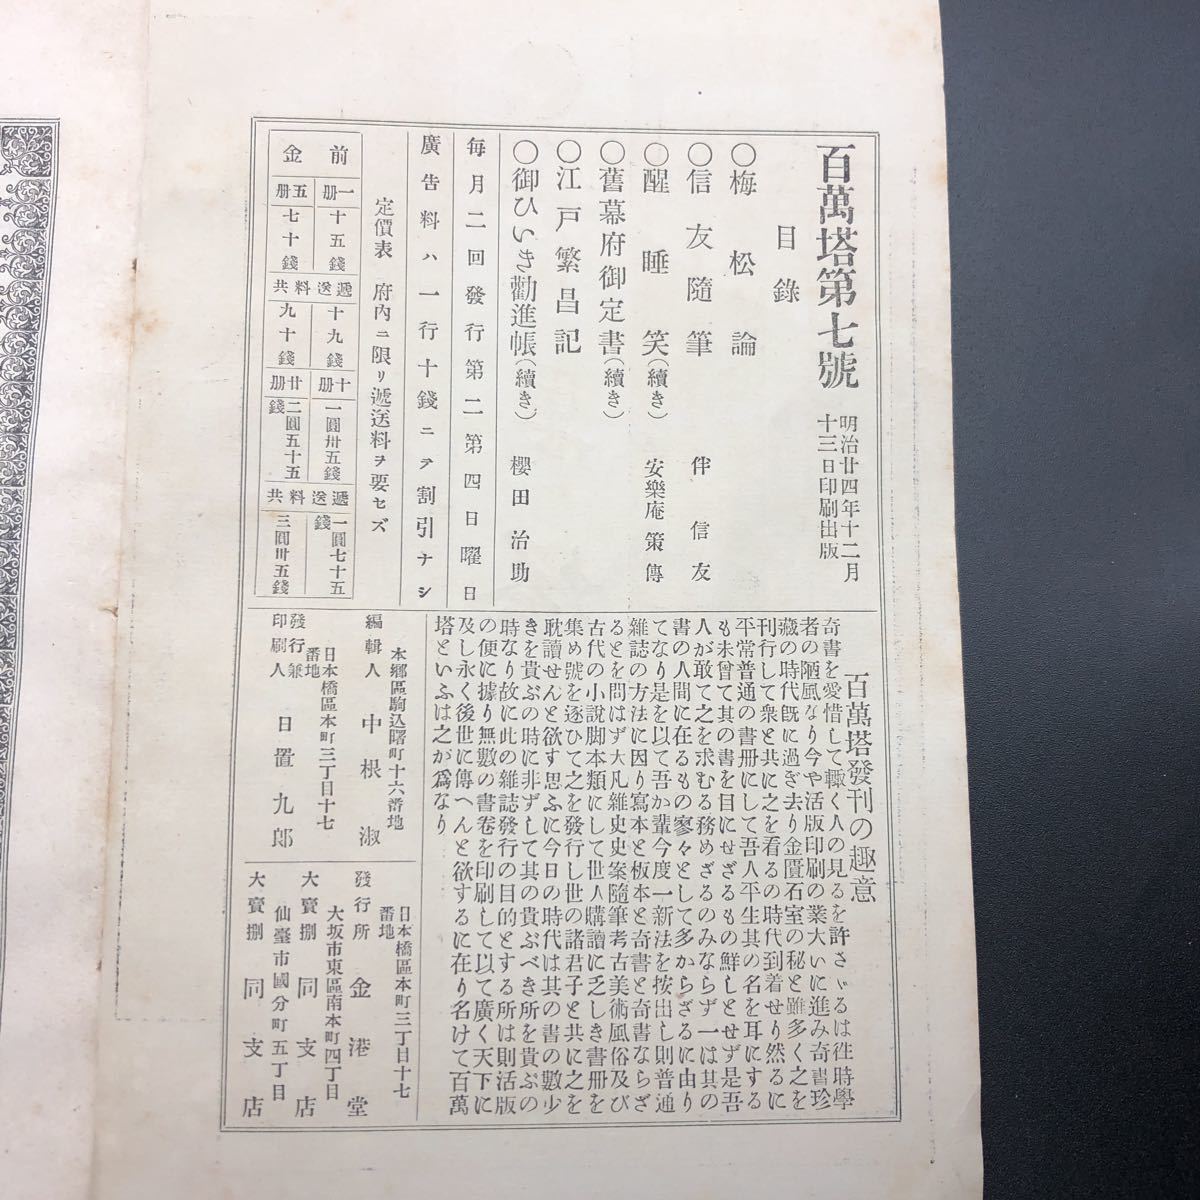 百萬塔第七號
明治廿四年十二月
十三日印刷出版
目錄
○梅松論
○信友隨筆 伴信友
○醒睡笑(續き) 安樂庵策傳
○舊幕府御定書(續き)
○江戸繁昌記
○御ひいき勸進帳(續き) 櫻田治助
每月二回發行第二第四日曜日
廣告料ハ一行十錢ニテ割引ナシ
定價表 府內ニ限リ遞送料ヲ要セズ
前金
一册 十五錢 遞送料共 十九錢
五册 七十錢 遞送料共 九十錢
十册 一圓卅五錢 遞送料共 一圓七十五錢
廿册 二圓五十五錢 遞送料共 三圓卅五錢
百萬塔發刊の趣意
奇書を愛惜して輙く人の見るを許さゞるは往時學
者の陋風なり今や活版印刷の業大いに進み奇書珍
藏の時代旣に過ぎ去り金匱石室の秘と雖多く之を
刊行して衆と共に之を看るの時代到着せり然るに
平常普通の書册にして吾人平生其の名を耳にする
も未曾て其の書を目にせざるもの鮮しとせず是吾
人が敢て之を求むる務めざるのみならず一は其の
書の人間に在るもの寥々として多からざるに由り
てなり是を以て吾か輩今度一新法を按出し則普通
雜誌の方法に因り寫本と板本と奇書と奇書ならざ
るとを問はず大凡雜史史案隨筆考古美術風俗及び
古代の小說脚本類にして世人購讀に乏しき書册を
集め號を逐ひて之を發行し世の諸君子と共に之を
耽讀せんと欲す思ふに今日の時代は其の書の數少
きを貴ぶの時に非ずして其の貴ぶべき所を貴ぶの
時なり故に此の雜誌發行の目的とする所は則活版
の便に據り無數の書卷を印刷して以て廣く天下に
及し永く後世に傳へんと欲するに在り名けて百萬
塔といふは之が爲なり
本鄕區駒込曙町十六番地
編輯人 中根淑
日本橋區本町三丁目十七
番地
發行兼
印刷人 日置九郎
日本橋區本町三丁目十七
番地
發行所 金港堂
大坂市東區南本町四丁目
大賣捌 同支店
仙臺市國分町五丁目
大賣捌 同支店